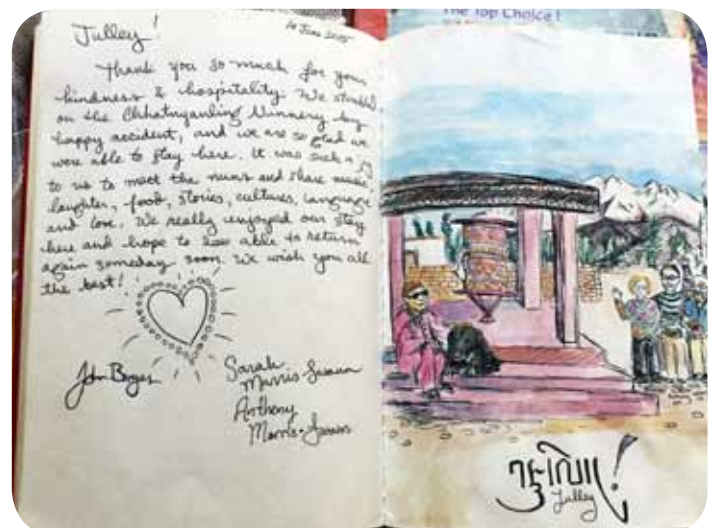 The Top Choice!
Julley!
Thank you so much for your
kindness & hospitality. We stumbled
on the Chhatnyanling Nunnery by
happy accident, and we are so glad we
were able to stay here. It was such a joy
to us to meet the nuns and share music,
laughter, food, stories, cultures, language
and love. We really enjoyed our stay
here and hope to be able to return
again someday soon. We wish you all
the best!
John
Sarah
Morris-
Anthony
Morris-
Julley